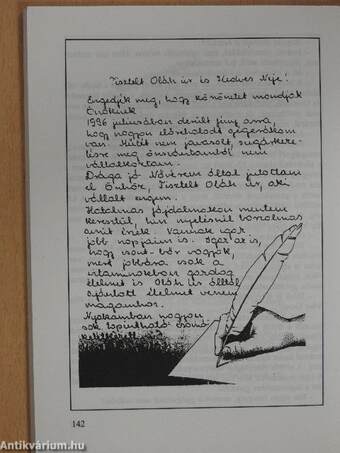 Tisztelt Oláh úr és Kedves Neje!
Engedjék meg, hogy köszönetet mondjak
Önöknek
1996 júliusában derült fény arra,
hogy nagyon előrehaladott gégerákom
van. Műtét nem javasolt, sugárkeze-
lésre meg önszántamból nem
vállalkoztam.
Drága jó Nővérem által jutottam
el Önhöz, Tisztelt Oláh úr, aki
vállalt engem.
Hatalmas fájdalmakon mentem
keresztül, ami nyelésnél borzalmas
amit érzek. Vannak igaz
jobb napjaim is. Igaz az is,
hogy csont-bőr vagyok,
mert jobbára csak a
vitaminokban gazdag
élelmet és Oláh úr által
ajánlott élelmet veszem
magamhoz.
Nyakamban nagyon
sok tapintható csomó
142
Antikvárium.hu